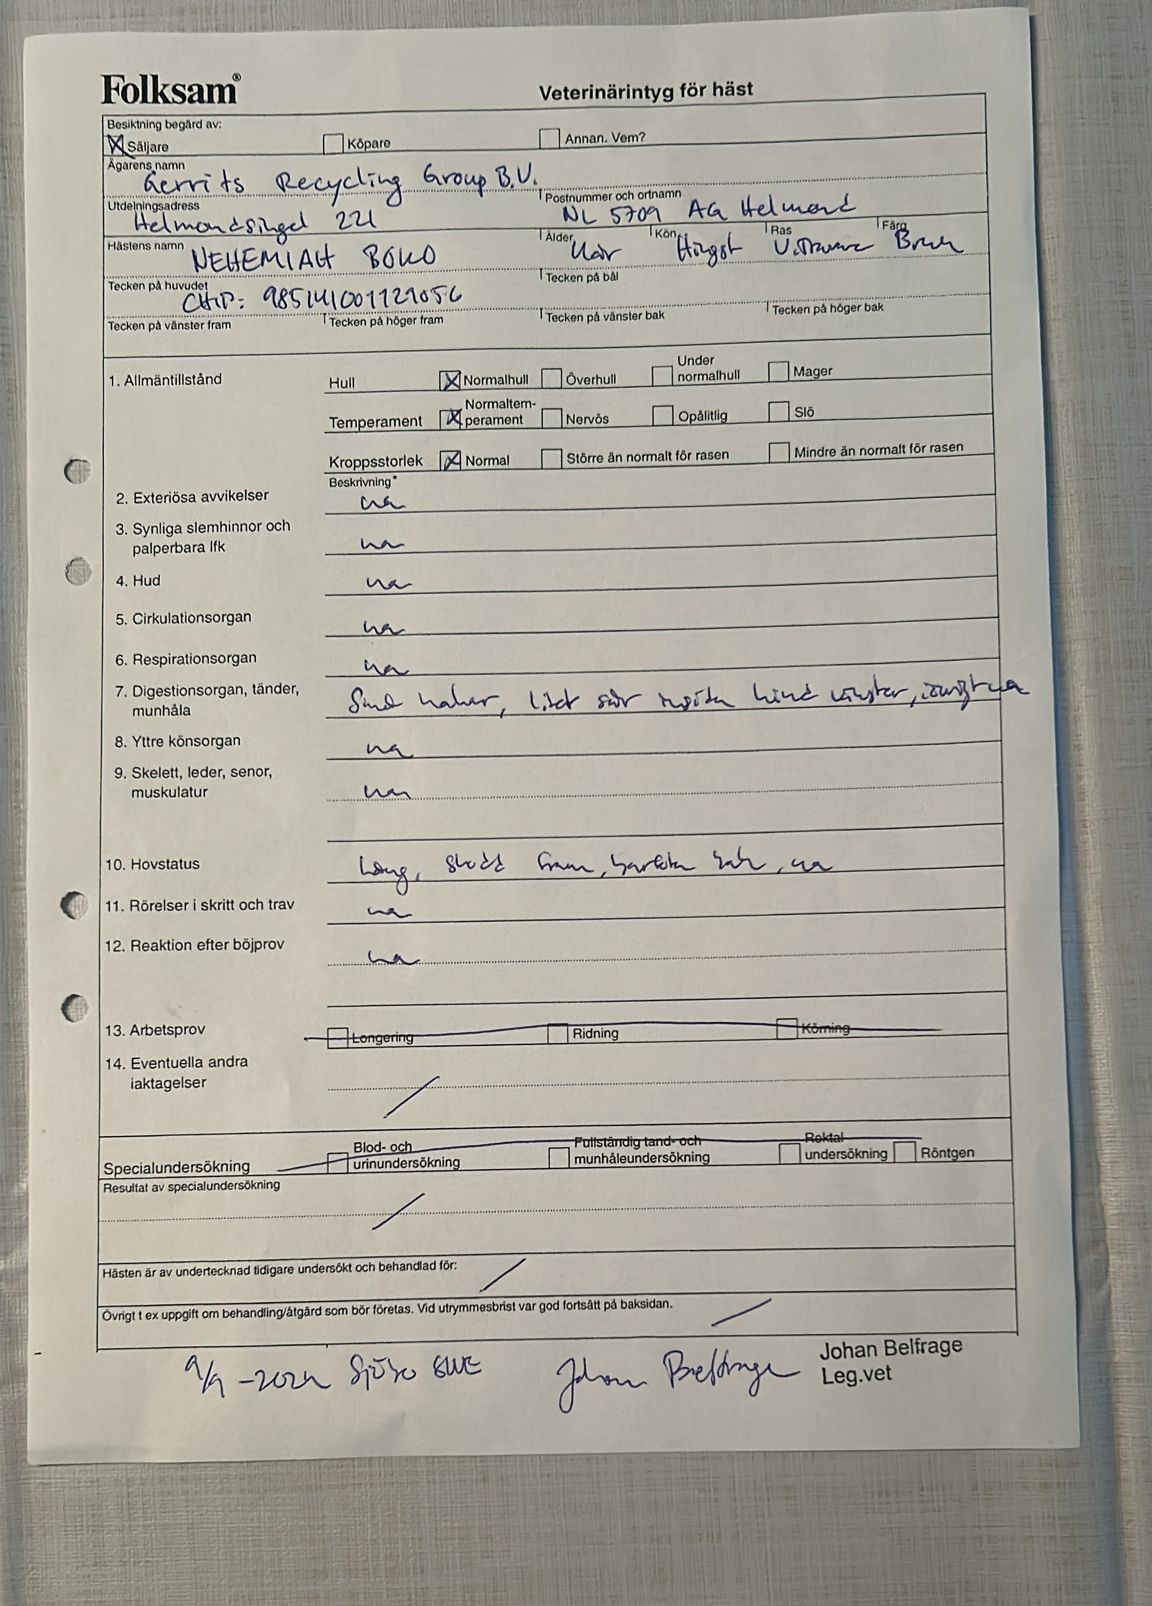 Folksam®
Veterinärintyg för häst
Besiktning begärd av:
Säljare Köpare Annan. Vem?
Ägarens namn
Gerrits Recycling Group B.V.
Utdelningsadress Postnummer och ortnamn
Helmondsingel 221 NL 5709 AG Helmond
Hästens namn Ålder Kön Ras Färg
NEHEMIAH BOKO Hingst Brun
Tecken på huvudet Tecken på bål
CHIP: 985141001729056
Tecken på vänster fram Tecken på höger fram Tecken på vänster bak Tecken på höger bak
1. Allmäntillstånd Hull Normalhull Överhull Under normalhull Mager
Temperament Normaltem-perament Nervös Opålitlig Slö
Kroppsstorlek Normal Större än normalt för rasen Mindre än normalt för rasen
Beskrivning*
2. Exteriösa avvikelser na
3. Synliga slemhinnor och
palperbara lfk na
4. Hud na
5. Cirkulationsorgan na
6. Respirationsorgan na
7. Digestionsorgan, tänder,
munhåla Små hakar, litet sår insida kind vänster, övrigt na
8. Yttre könsorgan na
9. Skelett, leder, senor,
muskulatur na
10. Hovstatus Lång, skodd fram, barfota bak, na
11. Rörelser i skritt och trav na
12. Reaktion efter böjprov na
13. Arbetsprov Longering Ridning Körning
14. Eventuella andra
iaktagelser
Specialundersökning Blod- och urinundersökning Fullständig tand- och munhåleundersökning Rektal undersökning Röntgen
Resultat av specialundersökning
Hästen är av undertecknad tidigare undersökt och behandlad för:
Övrigt t ex uppgift om behandling/åtgärd som bör företas. Vid utrymmesbrist var god fortsätt på baksidan.
9/9 -2024 Sjöbo SWE Johan Belfrage Johan Belfrage
Leg.vet